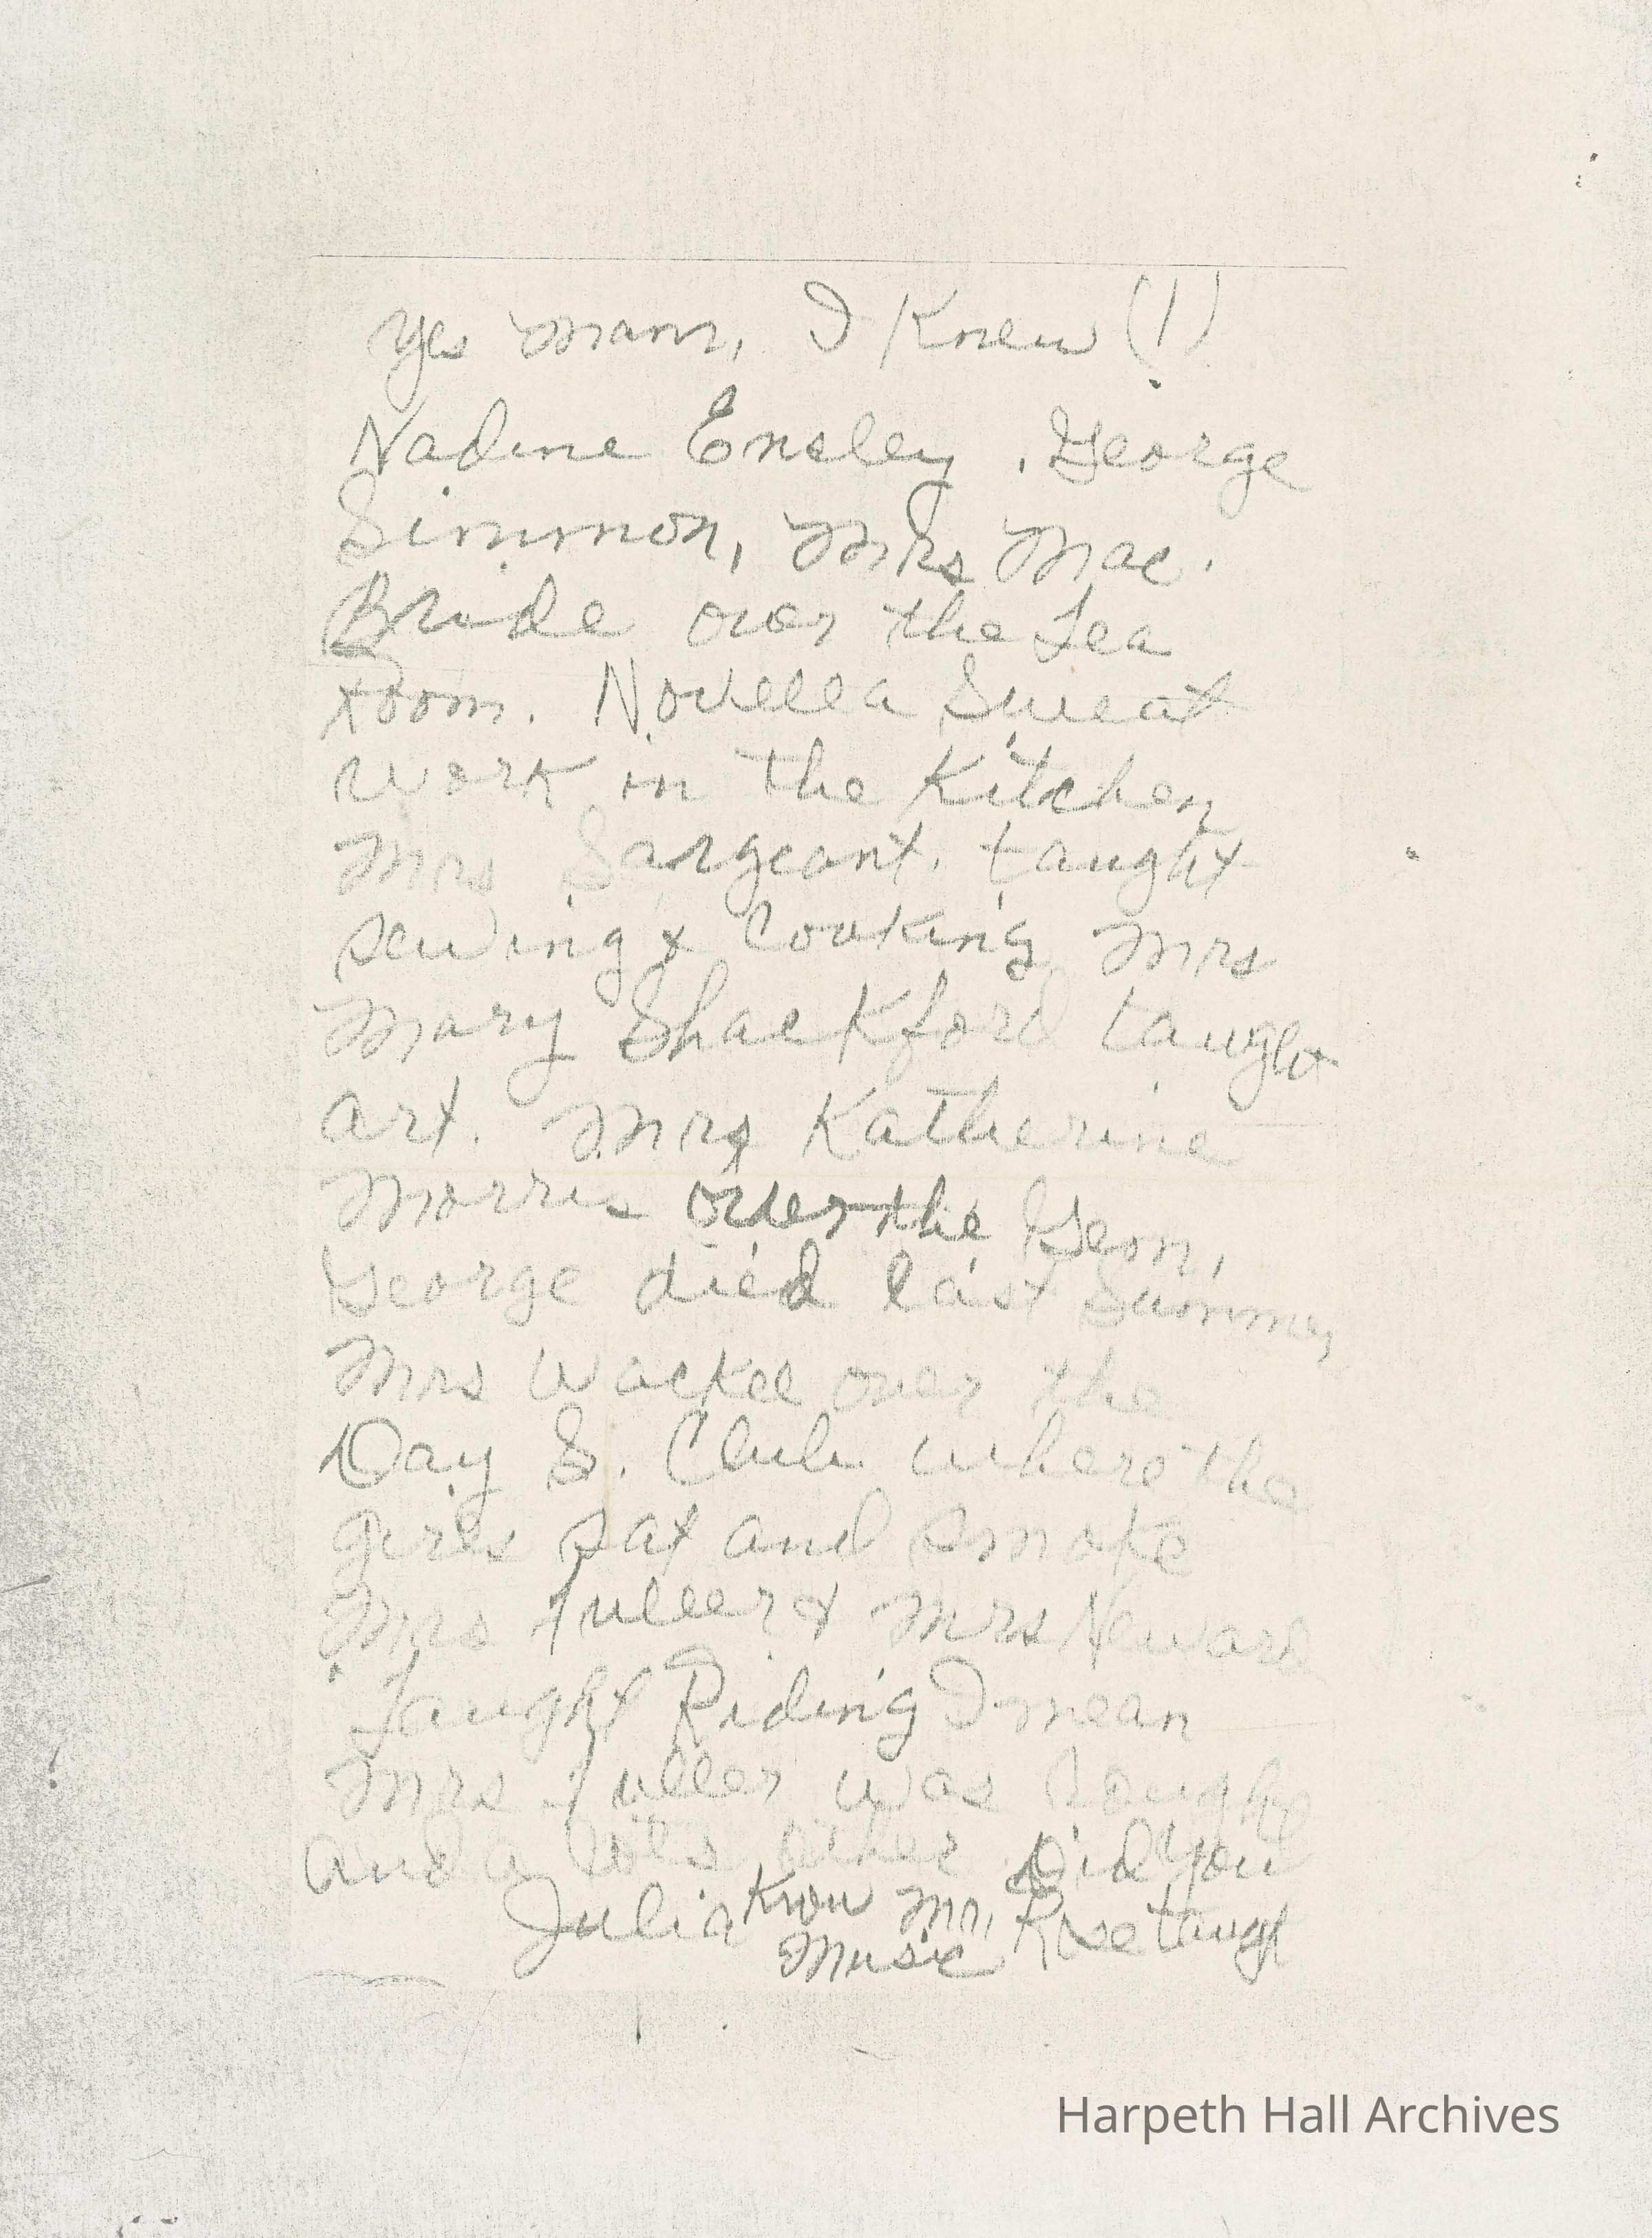 Yes mam, I Knew (1)
Nadine Ensley, George
Simmon, Mrs Mac.
Bride over the Tea
room. Novella Sweat
work in the Kitchen
Mrs Sargeant, taught
sewing & Cooking Mrs
Mary Shackford taught
art. Mrs Katherine
Morris over the Gem,
George died last Summer
Mrs Wackee over the
Day S. Club where the
girls sat and smoke
Mrs Fuller & Mrs
Taught Riding I mean
Mrs Fuller was
and a lots other Did you
Julia Know Mr. Rose taugh
Music
Harpeth Hall Archives